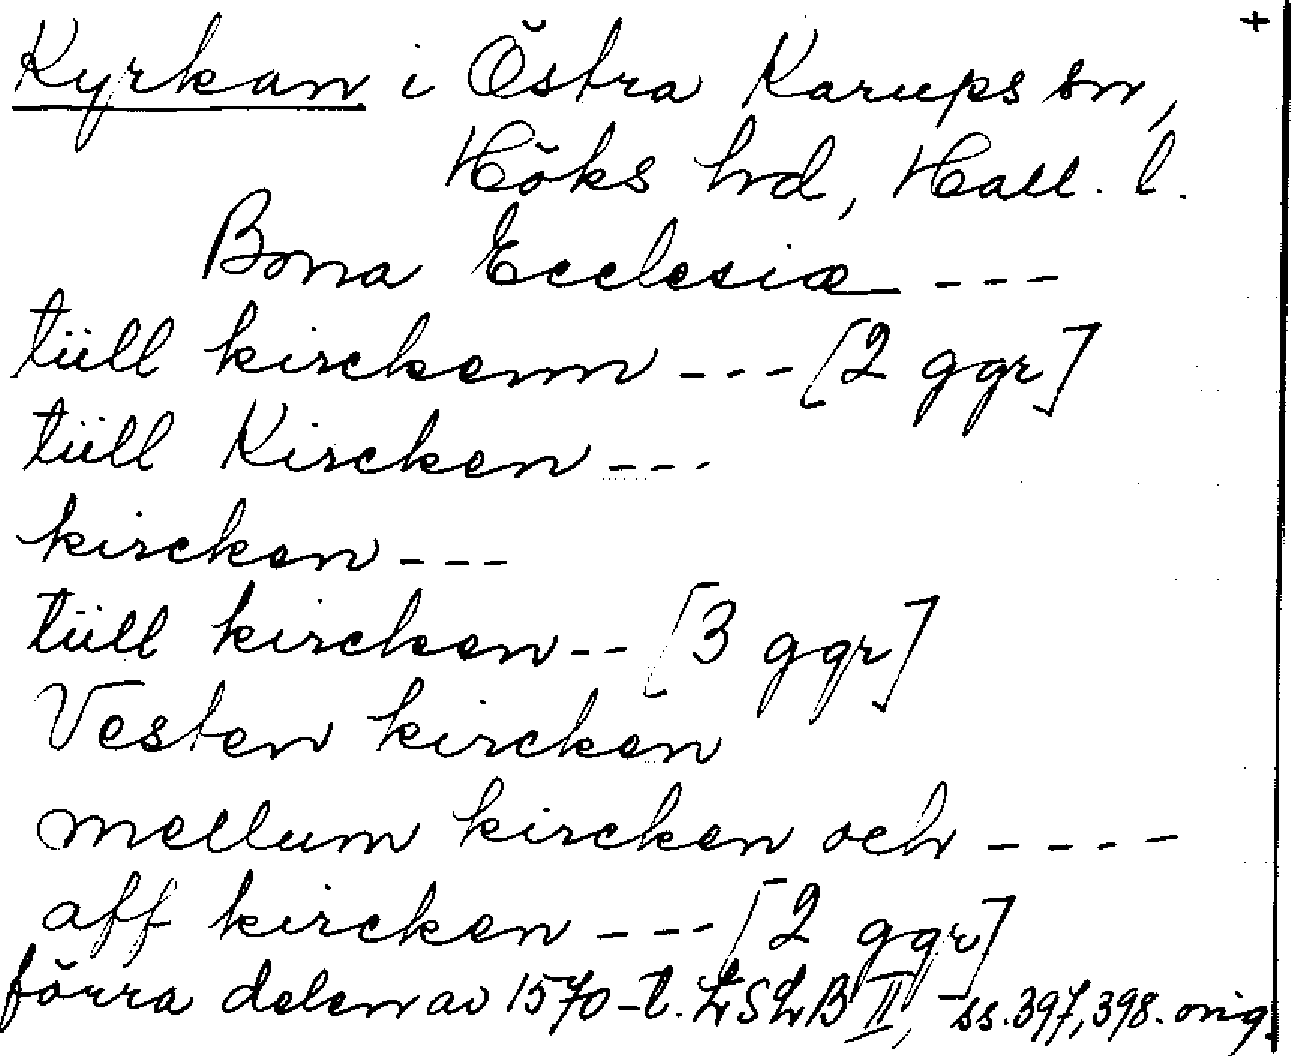 +
Kyrkan i Östra Karups sn,
Höks hrd, Hall. l.
Bona Ecclesiæ ---
tüll kirckenn --- [2 ggr]
tüll Kircken ---
kircken ---
tüll kircken -- [3 ggr]
Vesten kircken
mellum kircken och ----
aff kircken --- [2 ggr]
förra delen av 1570-t. LSLB II, ss. 397, 398. orig.